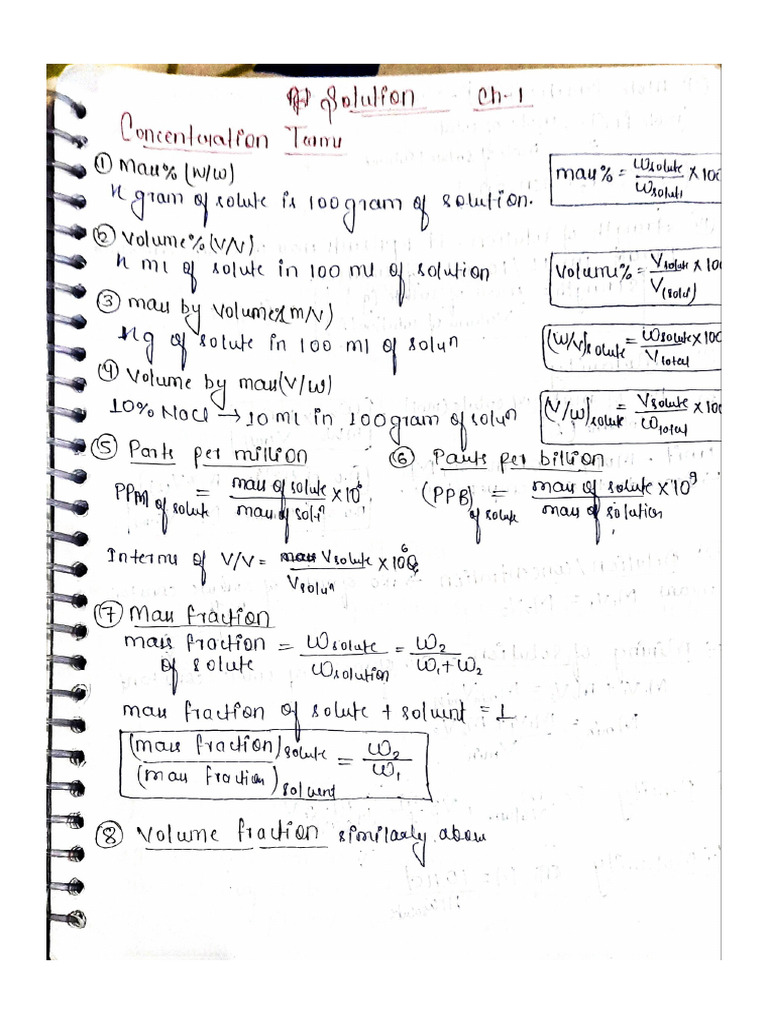 Solution Ch-1
Concentration Terms
① Mass% (W/W)
x gram of solute is 100 gram of solution.
mass% = Wsolute/Wsoluti × 100
② Volume% (V/V)
x ml of solute in 100 ml of solution
Volume% = Vsolute/V(soln) × 100
③ mass by volume (m/V)
x g of solute in 100 ml of soluⁿ
(W/V)solute = Wsolute/Vtotal × 100
④ Volume by mass (V/W)
10% NaCl → 10 ml in 100 gram of soluⁿ
(V/W)solute = Vsolute/Wtotal × 100
⑤ Parts per million
PPM of solute = mass of solute/mass of solⁿ × 10⁶
Interms of V/V = Vsolute/Vsoluⁿ × 10⁶
⑥ Parts per billion
(PPB) of solute = mass of solute/mass of solution × 10⁹
⑦ Mass fraction
mass fraction of solute = Wsolute/Wsolution = W₂/W₁+W₂
mass fraction of solute + solvent = 1
(mass fraction)solute/(mass fraction)solvent = W₂/W₁
⑧ Volume fraction similarly above